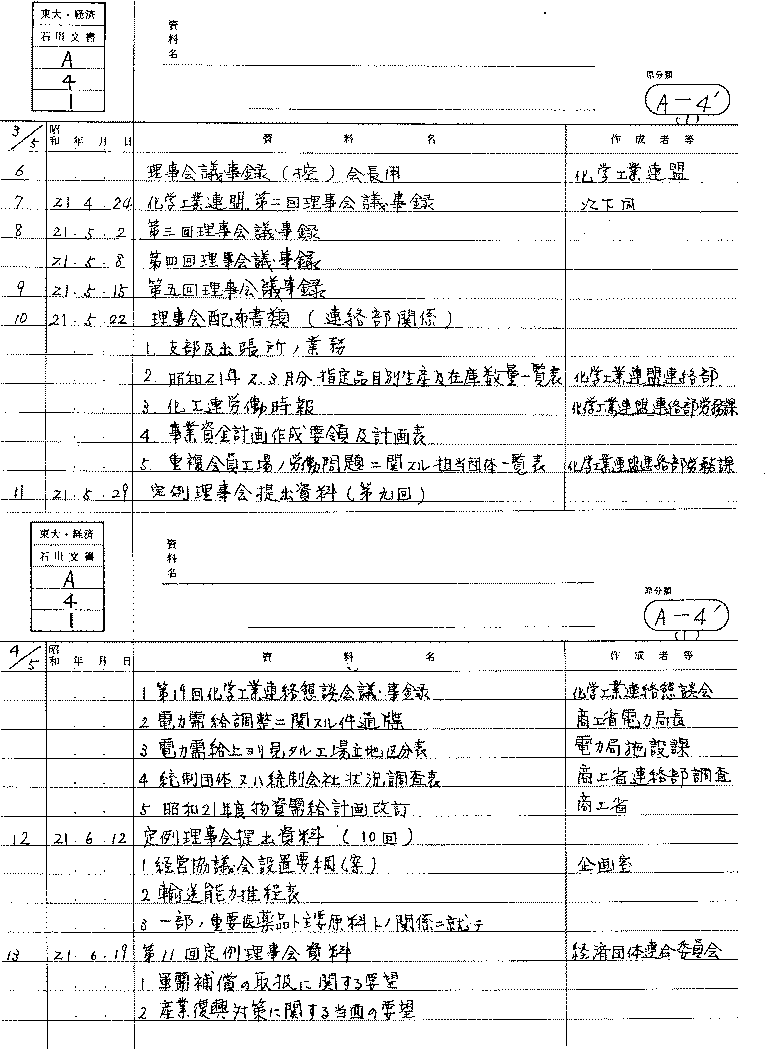 東大・経済
石川文書
A
4
1
資料名
原分類
A-4'
(1)
3/5 昭和 年 月 日 資料名 作成者等
6 理事会議事録(控)会長用 化学工業連盟
7 21 4 24 化学工業連盟第二回理事会議事録 以下同
8 21.5.2 第三回理事会議事録
21.5.8 第四回理事会議事録
9 21.5.15 第五回理事会議事録
10 21.5.22 理事会配布書類(連絡部関係)
1 支部及出張所ノ業務
2 昭和21年2.3月分指定品目別生産及在庫数量一覧表 化学工業連盟連絡部
3 化工連労働時報 化学工業連盟連絡部労務課
4 事業資金計画作成要領及計画表
5 重複会員工場ノ労働問題ニ関スル担当団体一覧表 化学工業連盟連絡部労務課
11 21.5.29 定例理事会提出資料(第九回)
東大・経済
石川文書
A
4
1
資料名
原分類
A-4'
(1)
4/5 昭和 年 月 日 資料名 作成者等
1 第19回化学工業連絡懇談会議事録 化学工業連絡懇談会
2 電力需給調整ニ関スル件通牒 商工省電力局長
3 電力需給上ヨリ見タル工場立地区分表 電力局施設課
4 統制団体又ハ統制会社状況調査表 商工省連絡部調査
5 昭和21年度物資需給計画改訂 商工省
12 21.6.12 定例理事会提出資料(10回)
1 経営協議会設置要綱(案) 企画室
2 輸送能力推程表
3 一部ノ重要医薬品ト主要原料トノ関係ニ就テ
13 21.6.19 第11回定例理事会資料 経済団体連合委員会
1 軍需補償の取扱に関する要望
2 産業復興対策に関する当面の要望